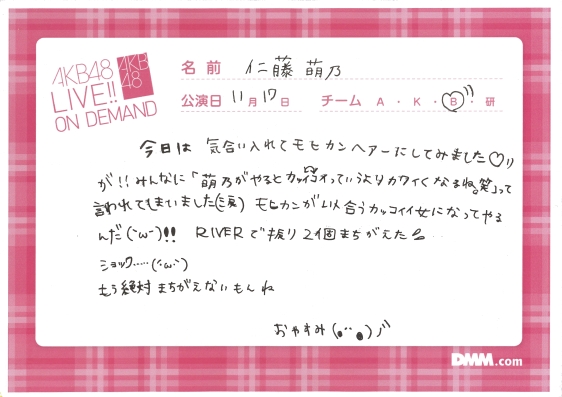 AKB48
LIVE!!
ON DEMAND
AKB
48
名前 仁藤 萌乃
公演日 11月17日 チーム A・K・B・研
今日は 気合い入れてモヒカンヘアーにしてみました♡
が!!みんなに「萌乃がやるとカッコイイっていうよりカワイくなるね。笑」って
言われてしまいました(涙) モヒカンが似合うカッコイイ女になってやる
んだ(`・ω・´)!! RIVERで振り2個まちがえた
ショック……(´・ω・`)
もう絶対まちがえないもんね
おやすみ
DMM.com